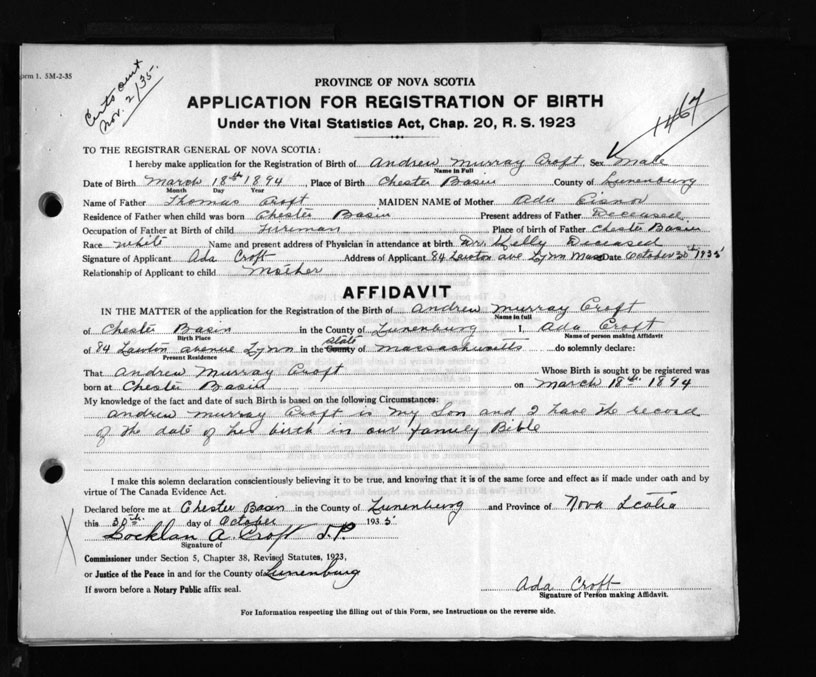 orm 1. 5M-2-35
Certs sent
Nov. 2/35.
PROVINCE OF NOVA SCOTIA
APPLICATION FOR REGISTRATION OF BIRTH
Under the Vital Statistics Act, Chap. 20, R. S. 1923
TO THE REGISTRAR GENERAL OF NOVA SCOTIA:
I hereby make application for the Registration of Birth of Andrew Murray Croft, Sex Male
Name in Full
Date of Birth March 18th 1894, Place of Birth Chester Basin County of Lunenburg
Month Day Year
Name of Father Thomas Croft MAIDEN NAME of Mother Ada Eisnor
Residence of Father when child was born Chester Basin Present address of Father Deceased
Occupation of Father at Birth of child Place of birth of Father Chester Basin
Race white Name and present address of Physician in attendance at birth Dr. Kelly Deceased
Signature of Applicant Ada Croft Address of Applicant 84 Lawton ave Lynn Mass Date October 30th 1935
Relationship of Applicant to child Mother
AFFIDAVIT
IN THE MATTER of the application for the Registration of the Birth of Andrew Murray Croft
Name in full
of Chester Basin in the County of Lunenburg I, Ada Croft
Birth Place Name of person making Affidavit
of 84 Lawton avenue Lynn in the County State of Massachusetts do solemnly declare:
Present Residence
That Andrew Murray Croft Whose Birth is sought to be registered was
born at Chester Basin on March 18th. 1894
My knowledge of the fact and date of such Birth is based on the following Circumstances:
Andrew Murray Croft is my Son and I have the record
of the date of his birth in our family Bible
I make this solemn declaration conscientiously believing it to be true, and knowing that it is of the same force and effect as if made under oath and by
virtue of The Canada Evidence Act.
Declared before me at Chester Basin in the County of Lunenburg and Province of Nova Scotia
this 30th. day of October 1935
Locklan A. Croft J.P.
Signature of
Commissioner under Section 5, Chapter 38, Revised Statutes, 1923,
or Justice of the Peace in and for the County of Lunenburg
If sworn before a Notary Public affix seal.
Ada Croft
Signature of Person making Affidavit.
For Information respecting the filling out of this Form, see Instructions on the reverse side.